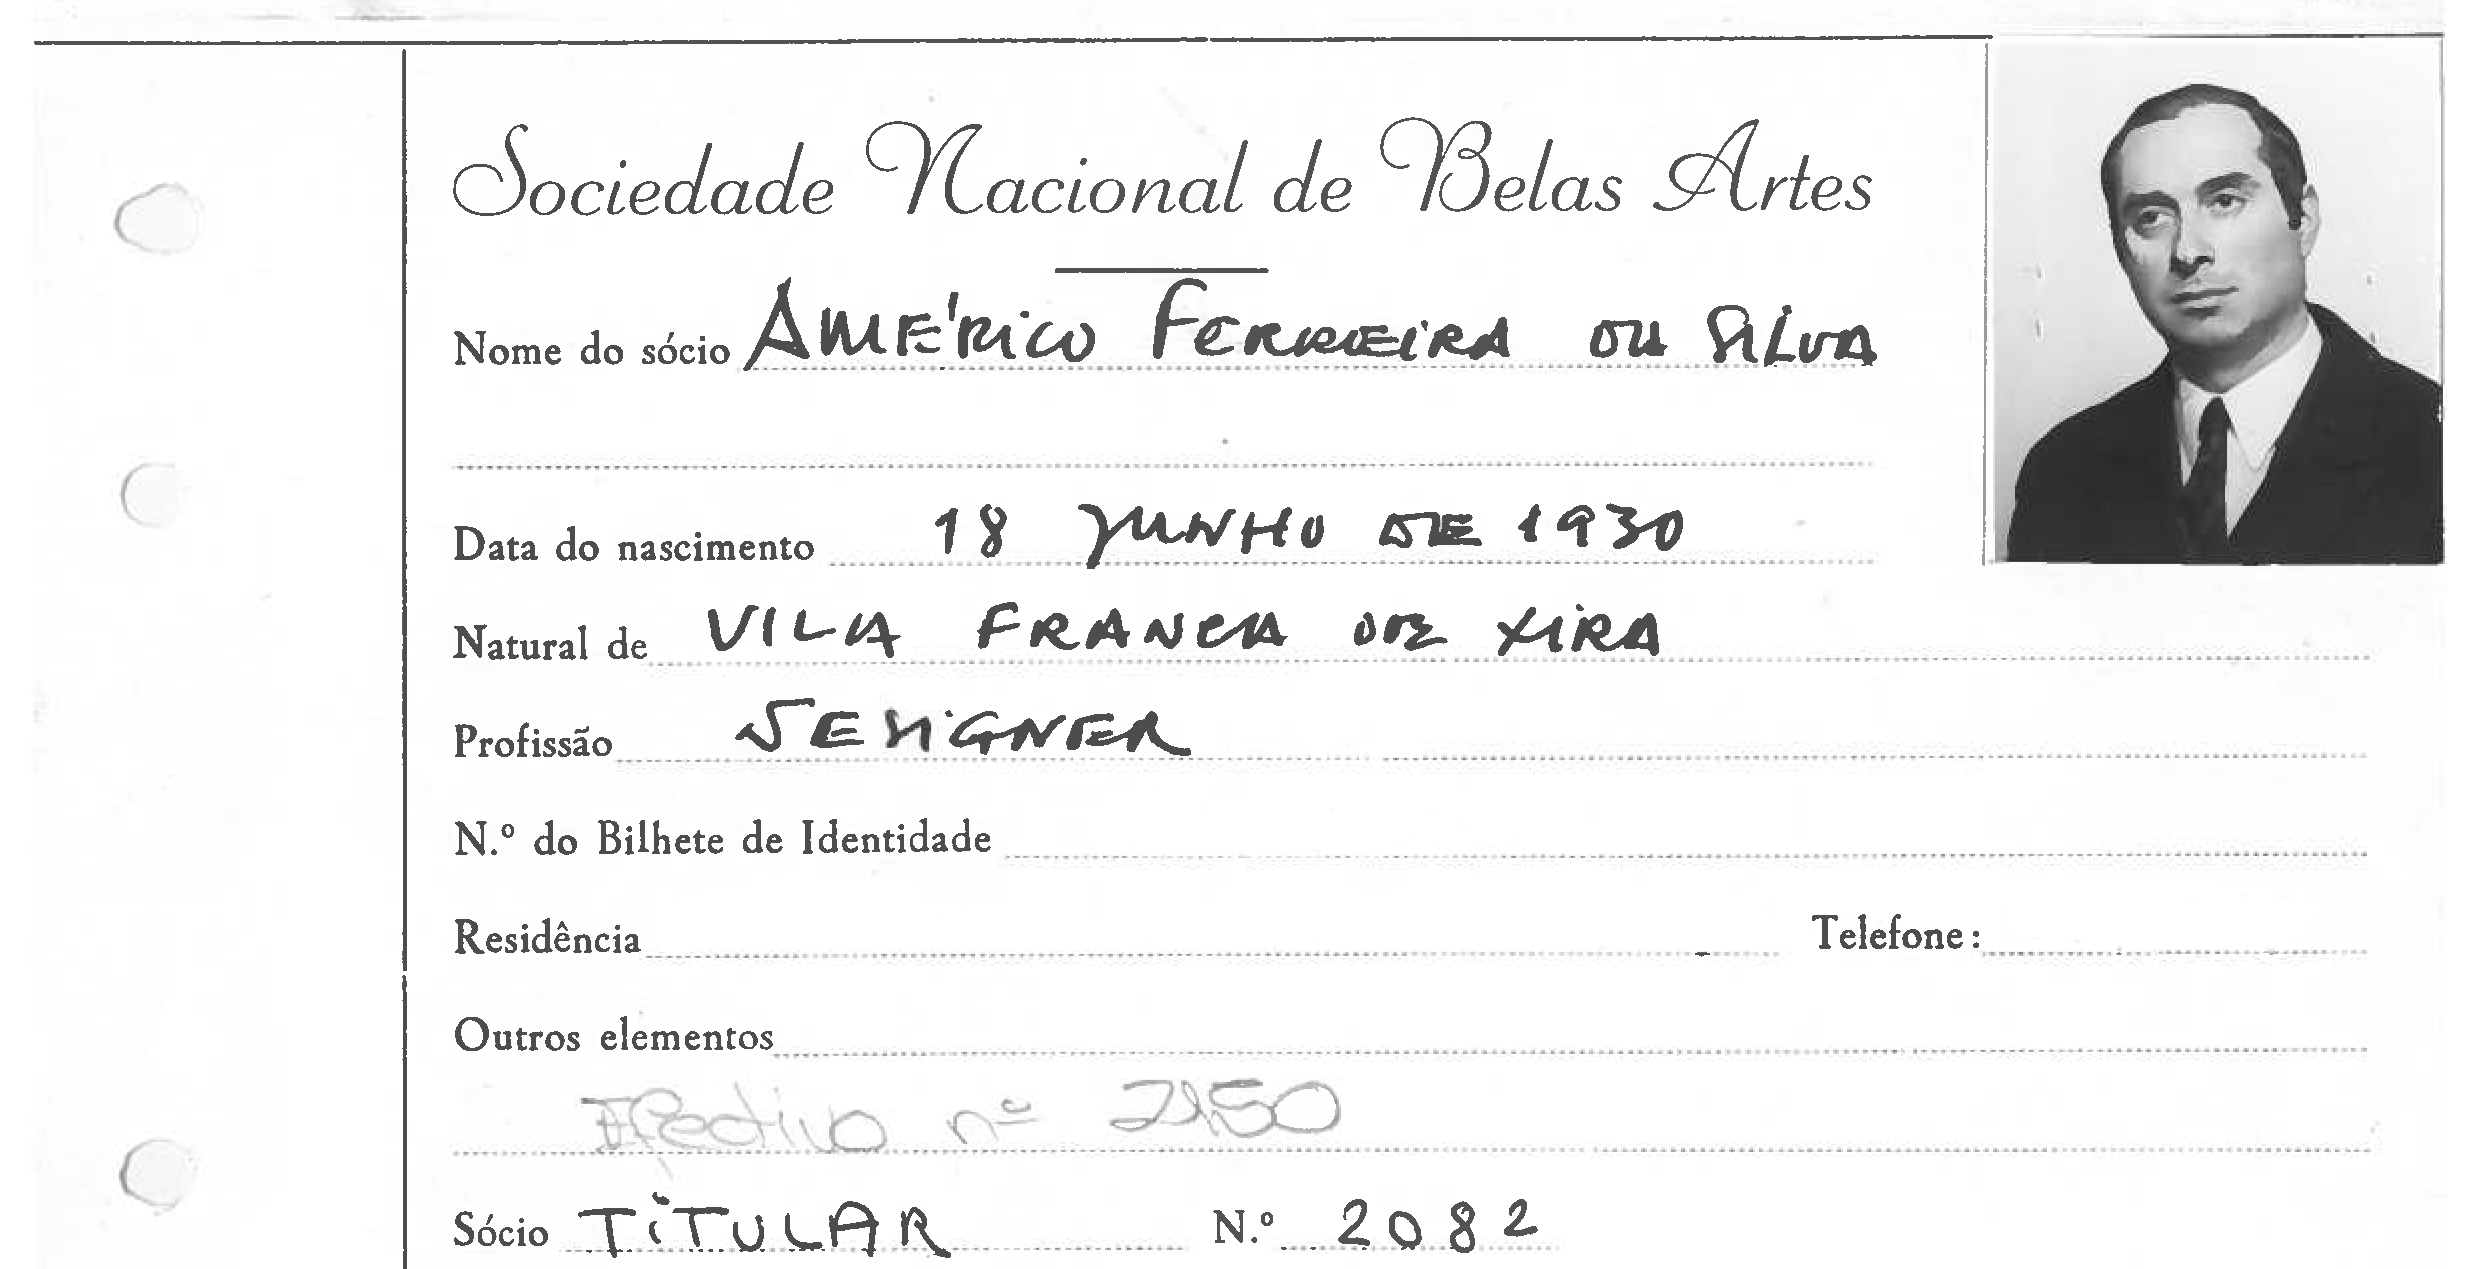 Sociedade Nacional de Belas Artes
Nome do sócio AMÉRICO FERREIRA DA SILVA
Data do nascimento 18 JUNHO DE 1930
Natural de VILA FRANCA DE XIRA
Profissão DESIGNER
N.º do Bilhete de Identidade
Residência Telefone:
Outros elementos
Efectivo nº 2150
Sócio TITULAR N.º 2082